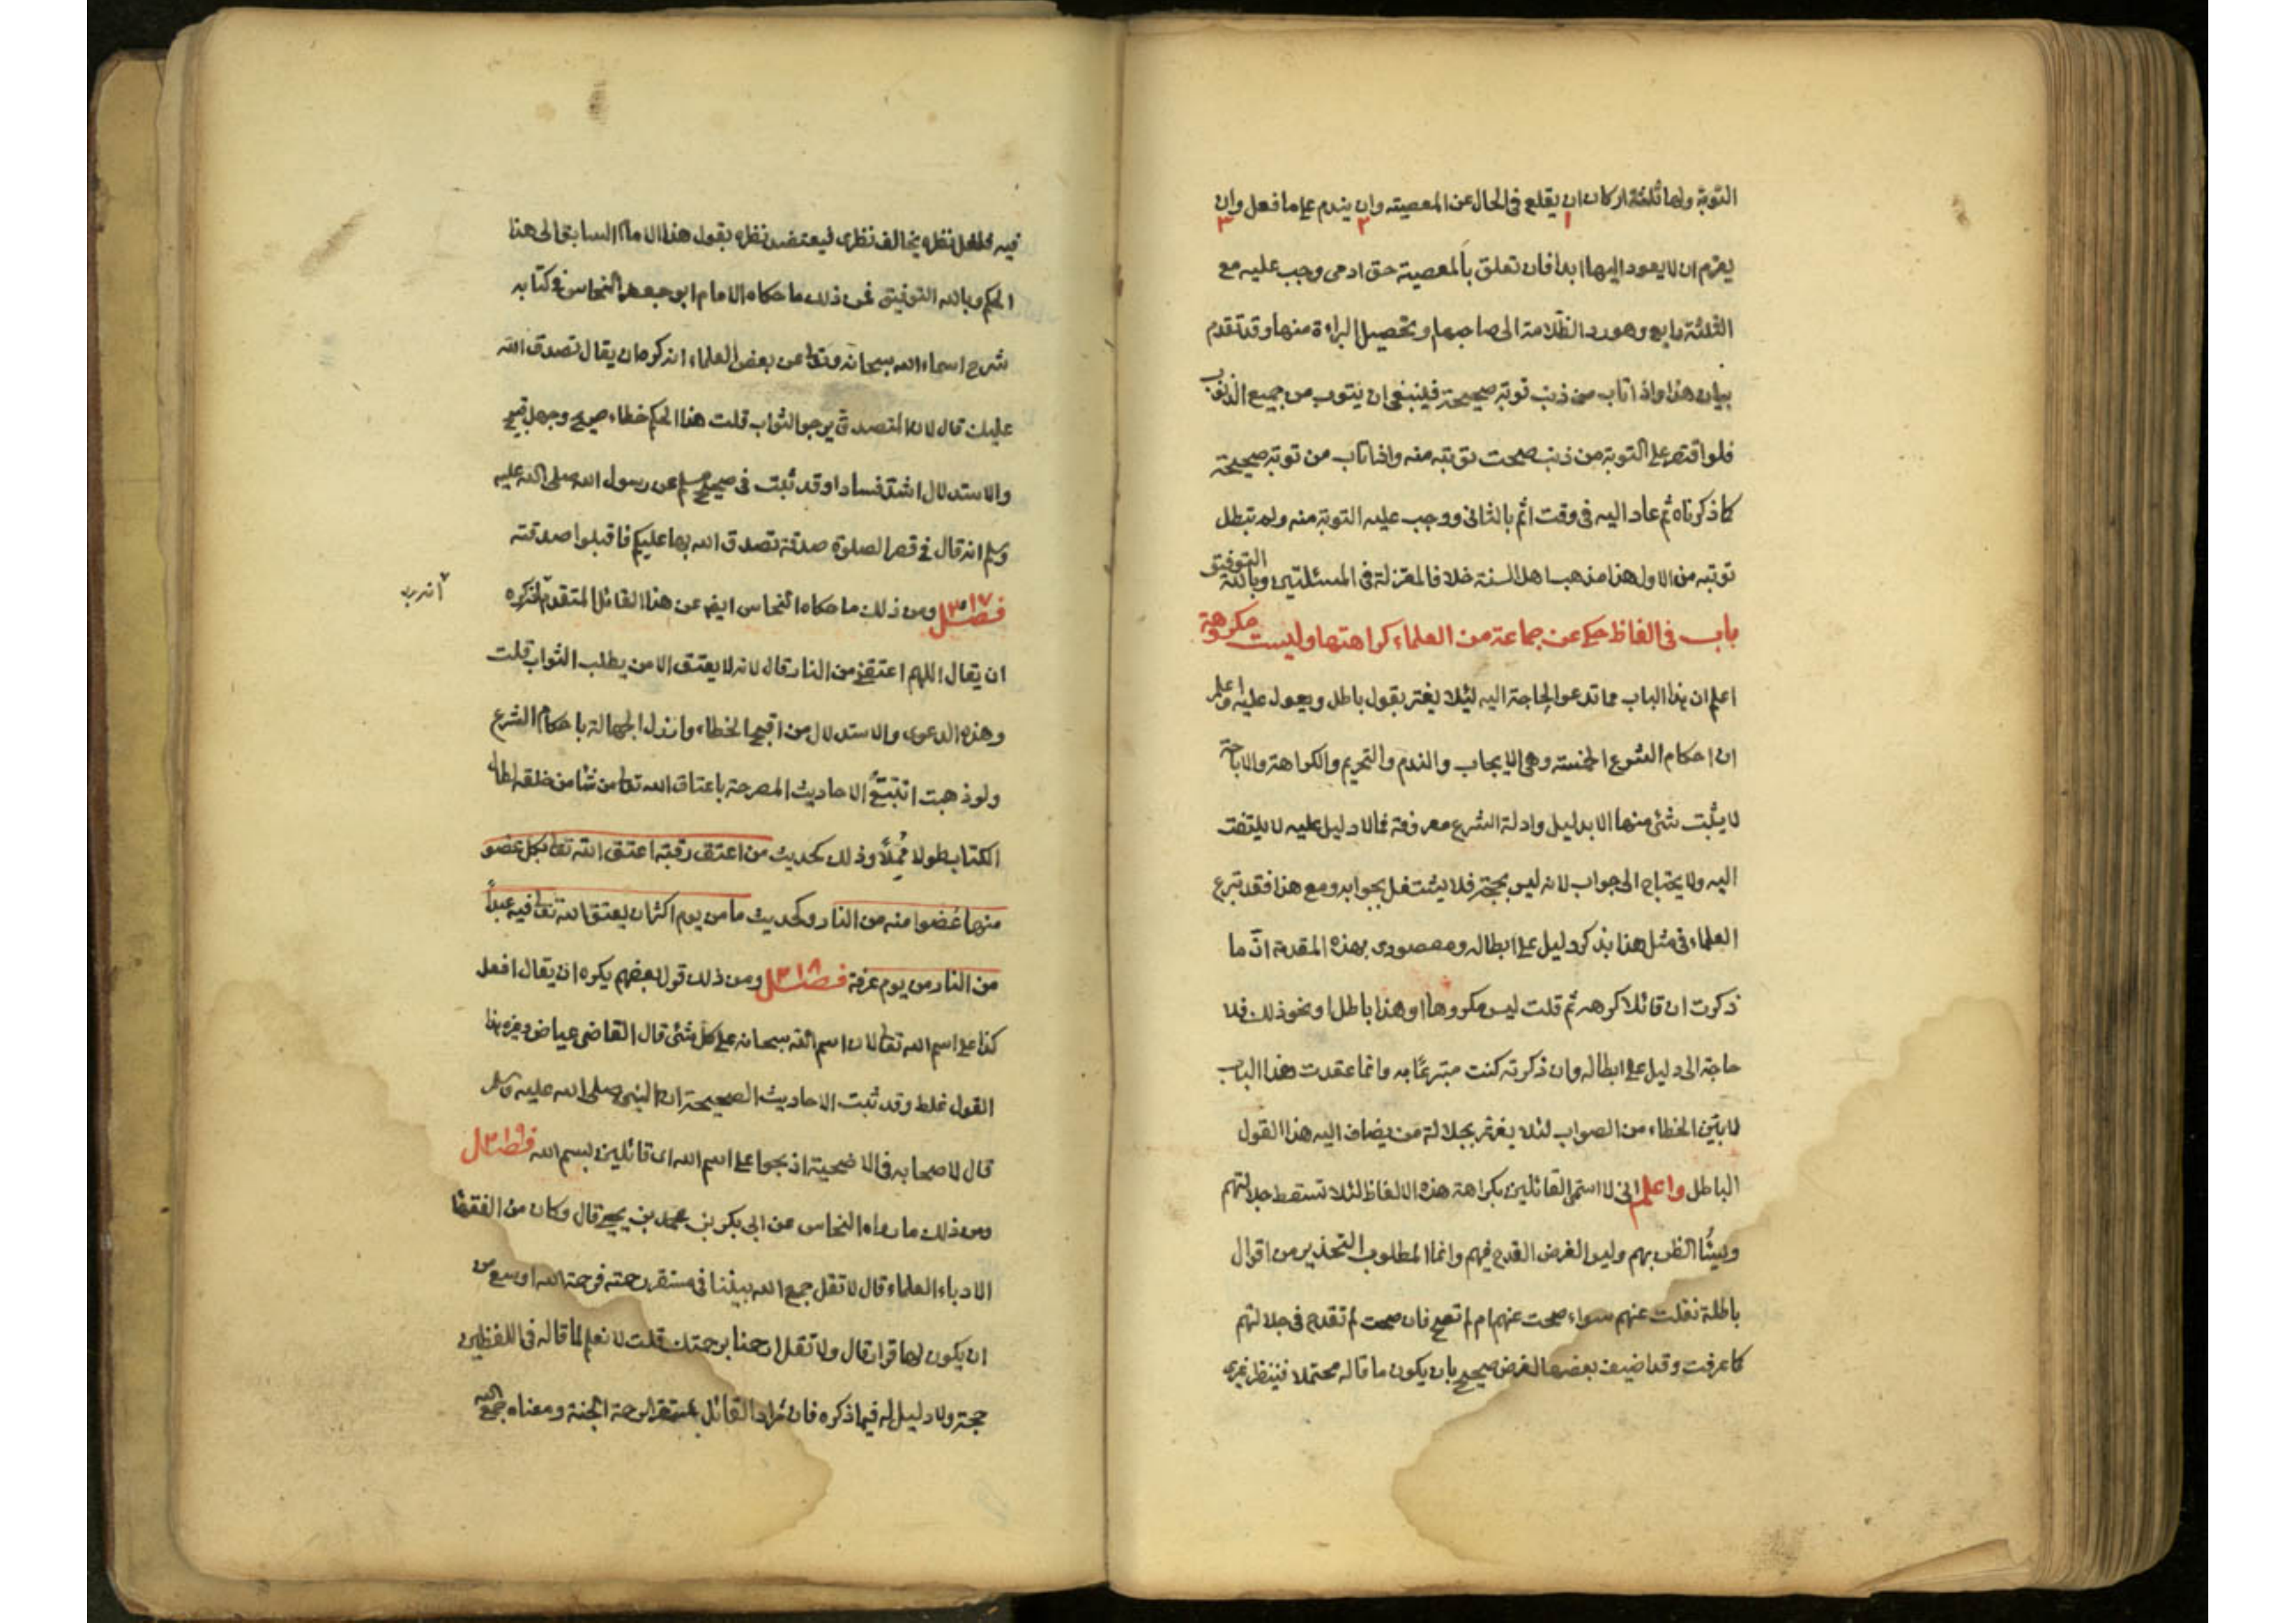 التوبة ولها ثلثة اركان ان يقلع فى الحال عن المعصيته وان يندم على ما فعل وان
١ ٢ ٣
يعزم ان لا يعود اليها ابدا فان تعلق بالمعصية حق ادمى وجب عليه مع
الثلثة رابع وهو رد الظلامة الى صاحبها وتحصيل البراءة منها وقد تقدم
بيان هذا واذا تاب من ذنب توبة صحيحة فينبغى ان يتوب من جميع الذنوب
فلو اقتصر على التوبة من ذنب صحت توبته منه واذا تاب من توبة صحيحة
كما ذكرناه ثم عاد اليه فى وقت اثم بالثانى ووجب عليه التوبة منه ولم تبطل
توبته من الاول هذا مذهب اهل السنة خلافا للمعتزلة فى المسئلتين وبالله التوفيق
باب فى الفاظ حكى عن جماعة من العلماء كراهتها وليست مكروهة
اعلم ان هذا الباب مما تدعو الحاجة اليه لئلا يغتر بقول باطل ويعول عليه واعلم
ان احكام الشرع الخمسته وهى الايجاب والندب والتحريم والكراهة والاباحة
لا يثبت شئ منها الا بدليل وادلة الشرع معروفة فما لا دليل عليه لا يلتفت
اليه ولا يحتاج الى جواب لانه ليس بحجة فلا يشتغل بجوابه ومع هذا فقد تبرع
العلماء فى مثل هذا بذكر دليل على ابطاله ومقصودى بهذه المقدمة ان ما
ذكرت ان قائلا كرهه ثم قلت ليس مكروها او هذا باطل او نحو ذلك فلا
حاجة الى دليل على ابطاله وان ذكرته كنت متبرعًا به وانما عقدت هذا الباب
لابين الخطاء من الصواب لئلا يغتر بجلالة من يضاف اليه هذا القول
الباطل واعلم انى لا اسمى القائلين بكراهة هذه الالفاظ لئلا تسقط جلالتهم
ويسئا الظن بهم وليس الغرض القدح فيهم وانما المطلوب التحذير من اقوال
باطلة نقلت عنهم سواء صحت عنهم ام لم تصح فان صحت لم تقدح فى جلالتهم
كما عرفت وقد اضيف بعضها لغرض صحيح بان يكون ما قاله محتملا فينظر غيرى
فيه فلعل نظره يخالف نظرى فيعتضد نظره بقول هذا الامام السابق الى هذا
الحكم وبالله التوفيق فمن ذلك ما حكاه الامام ابو جعفر النحاس فى كتابه
شرح اسماء الله سبحانه وتعا عن بعض العلماء انه كره ان يقال تصدق الله
عليك قال لان المتصدق يرجو الثواب قلت هذا الحكم خطاء صريح وجهل قبيح
والاستدلال اشد فسادا وقد ثبت فى صحيح مسلم عن رسول الله صلى الله عليه
وسلم انه قال فى قصر الصلوة صدقة تصدق الله بها عليكم فاقبلوا صدقته
فصل ٣١٧ ومن ذلك ما حكاه النحاس ايضا عن هذا القائل المتقدم انه كره
ان يقال اللهم اعتقنى من النار قال لانه لا يعتق الا من يطلب الثواب قلت
وهذه الدعوى والاستدلال من اقبح الخطاء وارذل الجهالة باحكام الشرع
ولو ذهبت اتتبع الاحاديث المصرحة باعتاق الله تعا من شاء من خلقه لطال
الكتاب طولا مملًا وذلك كحديث من اعتق رقبة اعتق الله تعا بكل عضو
منها عضوا منه من النار وكحديث ما من يوم اكثر ان يعتق الله تعا فيه عبداً
من النار من يوم عرفة فصل ٣١٨ ومن ذلك قول بعضهم يكره ان يقال افعل
كذا على اسم الله تعا لان اسم الله سبحانه على كل شئ قال القاضى عياض وغيره هذا
القول غلط وقد ثبت الاحاديث الصحيحة ان النبى صلى الله عليه وسلم
قال لاصحابه فى الاضحية اذبحوا على اسم الله اى قائلين بسم الله فصل ٣١٩
ومن ذلك ما رواه النحاس عن ابى بكر بن محمد بن يحيى قال وكان من الفقها
الادباء العلماء قال لا تقل جمع الله بيننا فى مستقر رحمته فرحمة الله اوسع من
ان يكون لها قرار قال ولا تقل ارحمنا برحمتك قلت لا نعلم لما قاله فى اللفظين
حجة ولا دليل له فيما ذكره فان مراد القائل بمستقر الرحمة الجنة ومعناه جمع الله